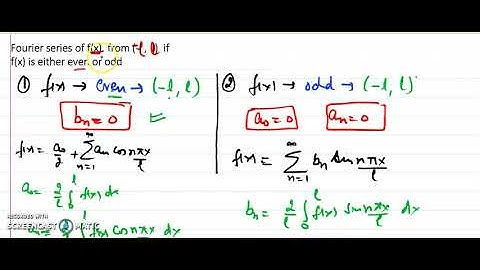 Fourier series of f(x) from (-l, l) if
f(x) is either even or odd
① f(x) → even → (-l, l)
bₙ = 0
f(x) = a₀/2 + ∑_{n=1}^{∞} aₙ cos nπx/l
a₀ = 2/l ∫₀^l f(x) dx
aₙ = f(x) cos nπx/l dx
② f(x) → odd → (-l, l)
a₀ = 0 aₙ = 0
f(x) = ∑_{n=1}^{∞} bₙ sin nπx/l
bₙ = 2/l ∫₀^l f(x) sin nπx/l dx
RECORDED WITH
SCREENCAST MATIC